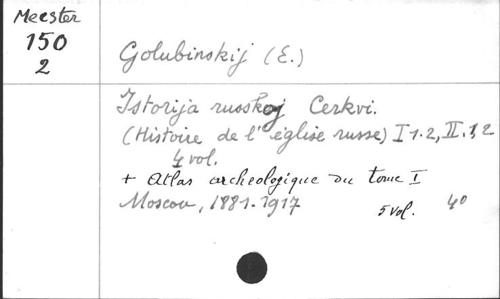 Meester
150
2
Golubinskij (E.)
Istorija russkoj Cerkvi.
(Histoire de l'église russe) I 1.2, II. 1 2
4 vol.
+ Atlas archeologique du tome I
Moscou, 1881-1917
5 vol. 4º